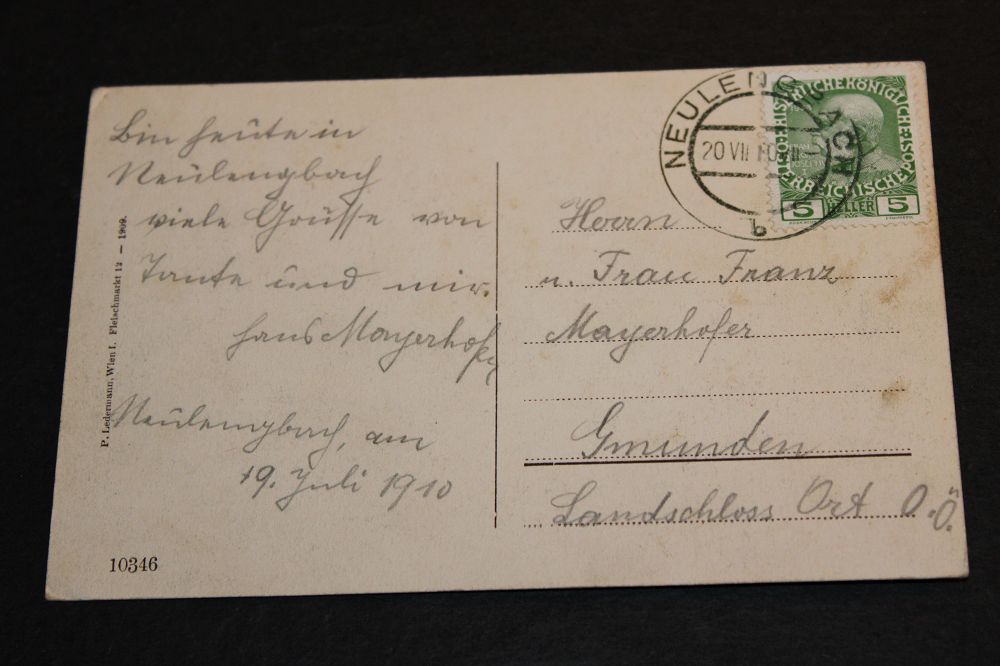 Bin heute in
Neulengbach
viele Grüsse von
Tante und mir.
Hans Mayerhofer
Neulengbach, am
19. Juli 1910
P. Ledermann, Wien I. Fleischmarkt 12 — 1909.
10346
NEULENGBACH
20 VII 10
b
KAISERLICHE KÖNIGLICHE
ÖSTERREICHISCHE POST
5 HELLER 5
Herrn
u. Frau Franz
Mayerhofer
Gmunden
Landschloss Ort O.Ö.